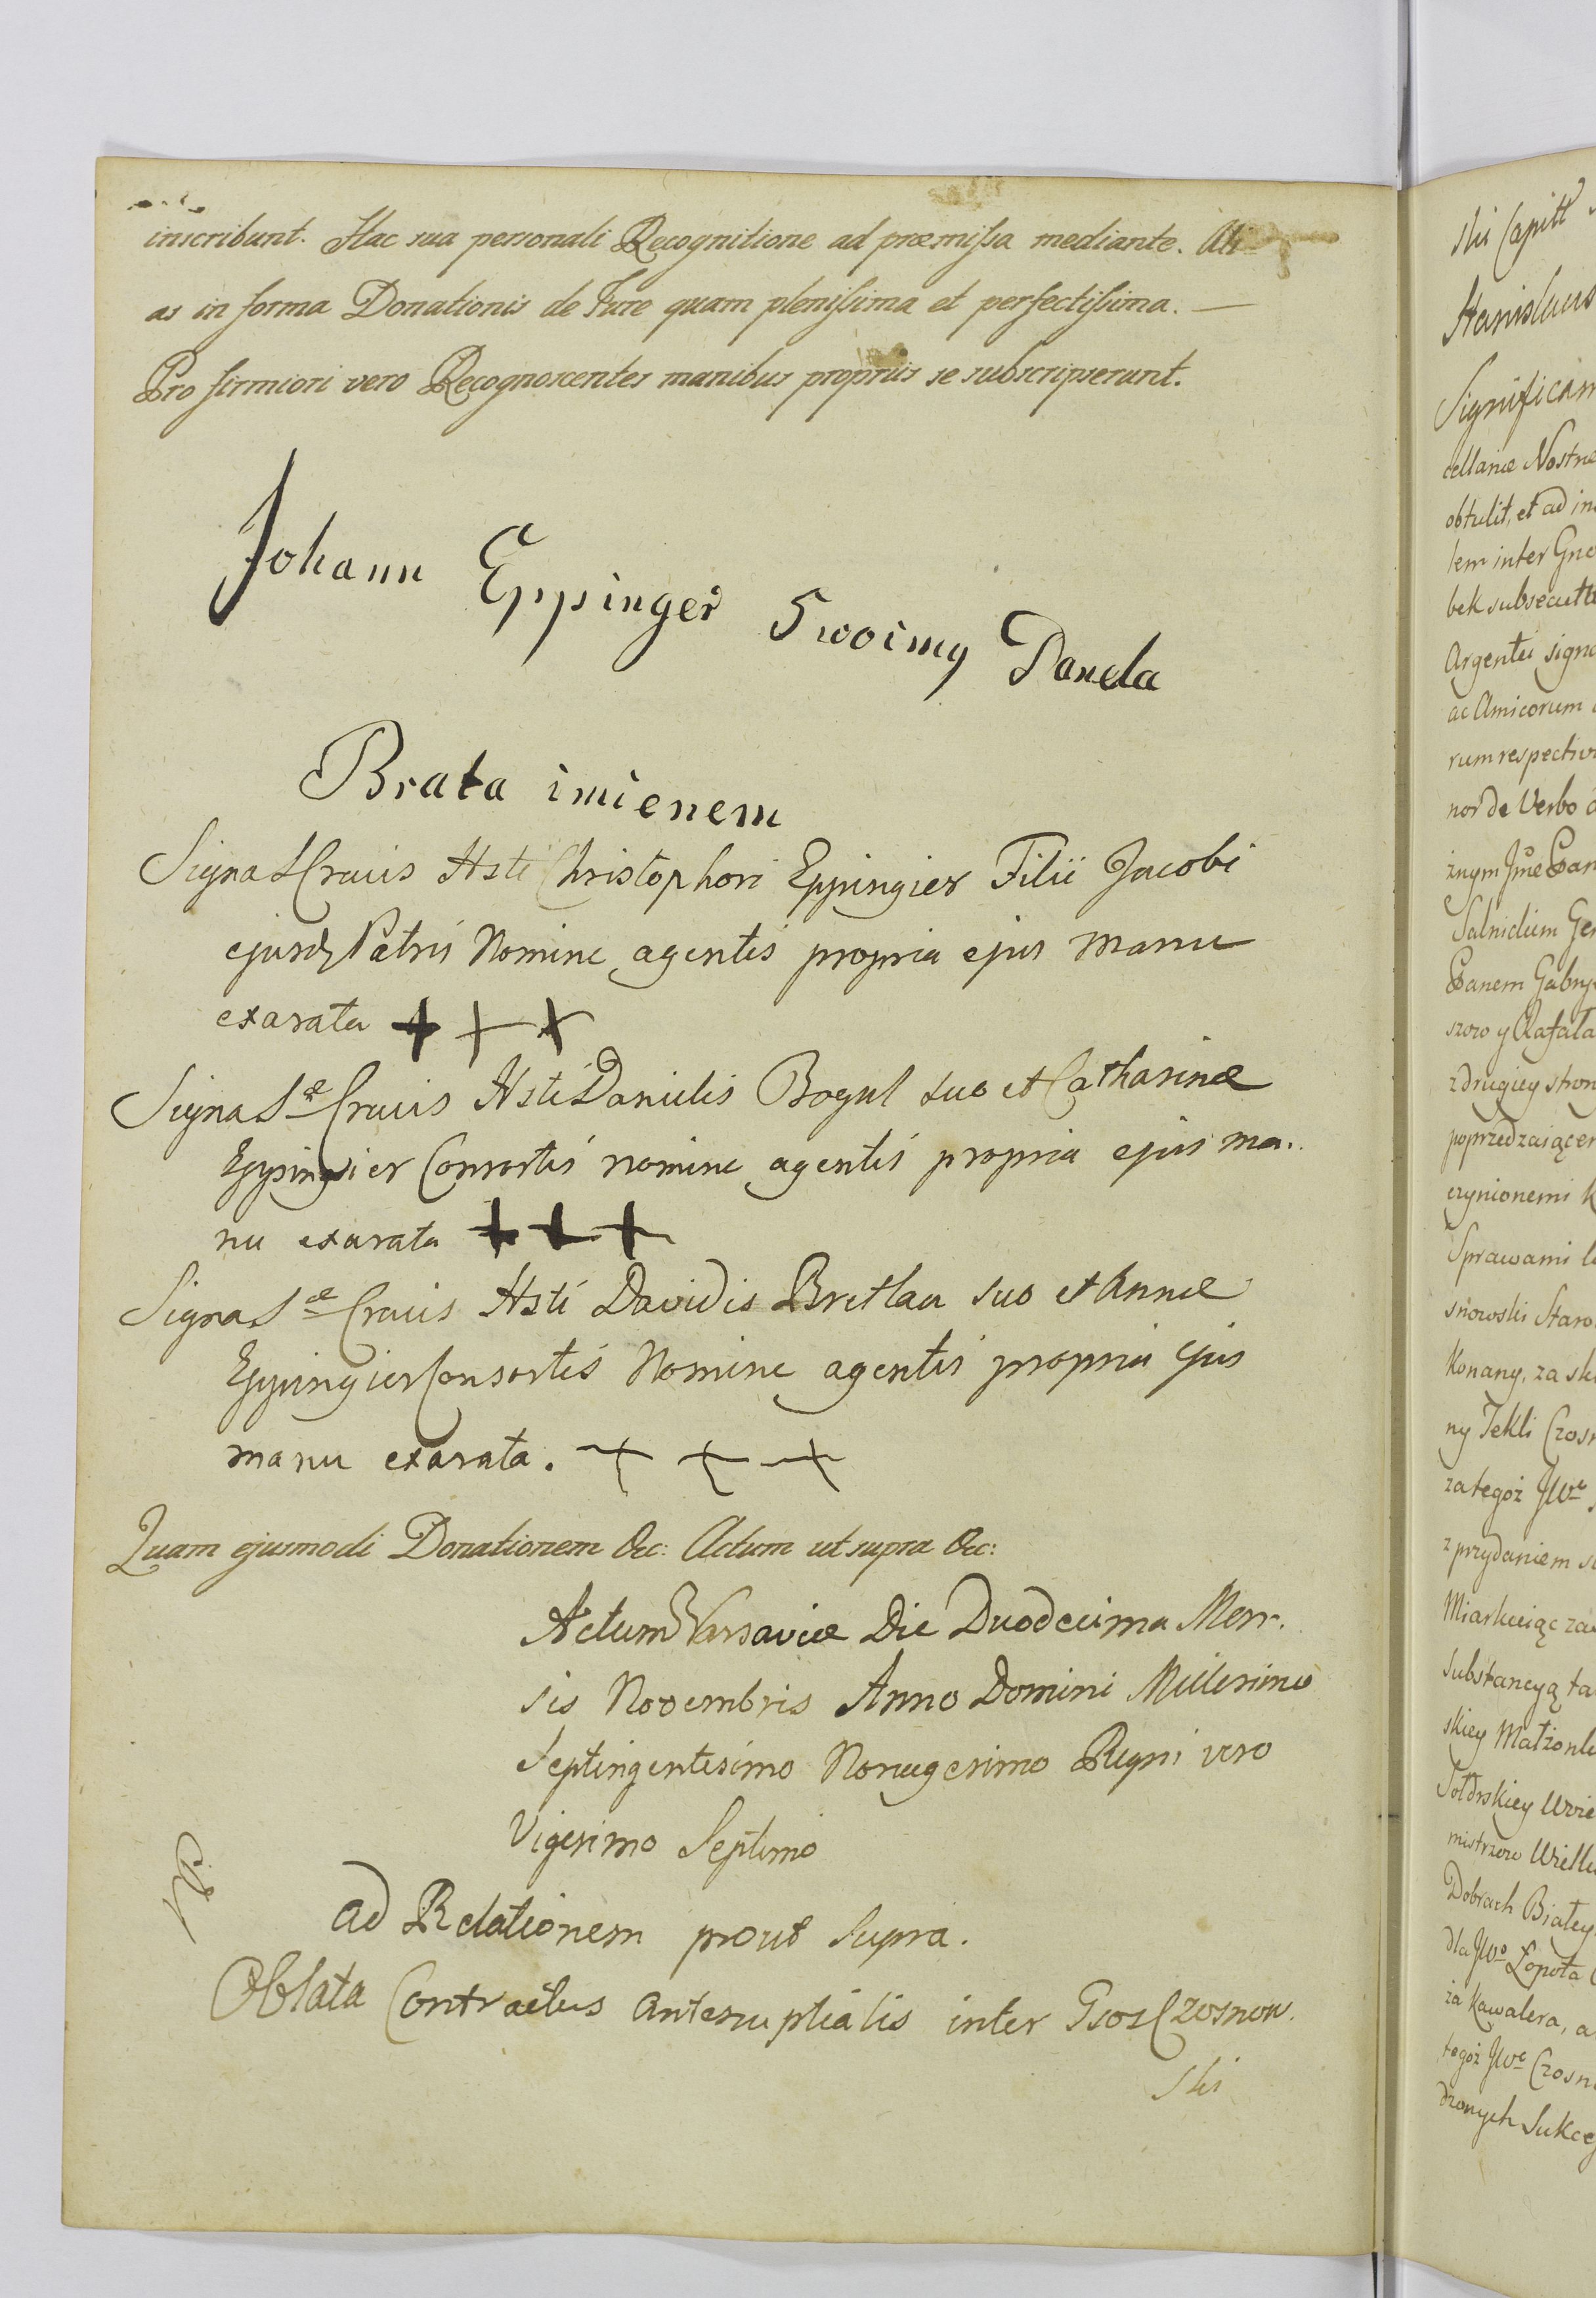 inscribunt. Hac sua personali Recognitione ad præmissa mediante. Ali
as in forma Donationis de Jure quam plenissima et perfectissima. —
Pro firmiori vero Recognoscentes manibus propriis se subscripserunt.
Johann Eppinger Swoimy Panela
Brata imienem
Signa S Crucis Hsti Christophori Eppingier Filii Jacobi
ejusdꝫ Patris Nomine agentis propria ejus manu
exarata + + +
Signa Sæ Crucis Hsti Danielis Bogul suo et Catharinæ
Eppingier Consortis nomine agentis propria ejus ma.
nu exarata + + +
Signa Sæ Crucis Hsti Davidis Bretlau suo et Annæ
Eppingier Consortis Nomine agentis propria ejus
manu exarata. + + +
Quam ejusmodi Donationem &c: Actum ut supra &c:
Actum Varsaviæ Die Duodecima Men.
sis Novembris Anno Domini Millesimo
Septingentesimo Nonagesimo Regni vero
Vigesimo Septimo
ad Relationem prout supra.
Oblata Contractus Antenuptialis inter Gsos Czosnow.
ski
ski Capitt
Stanislaus
Significam
cellariæ Nostræ
obtulit, et ad in
tem inter Gne
bek subsecutt
Argentei signa
ac Amicorum
rum respectiv
nor de Verbo
Panem Gabry
z drugiey stron
poprzedzaiącem
czynionemi k
Sprawami
snowski Staro
Konany, za sk
ny Tekli Czosn
zategoż JWᵉ
z przydaniem s
Miarkuiąc za
substancyą ta
skiey Małżonk
mistrzow Wielk
Dobrach Białey
dla JWᵒ Łopota
za Kawalera, a
tegoż JWᵉ Czosn
dzonych Sukce